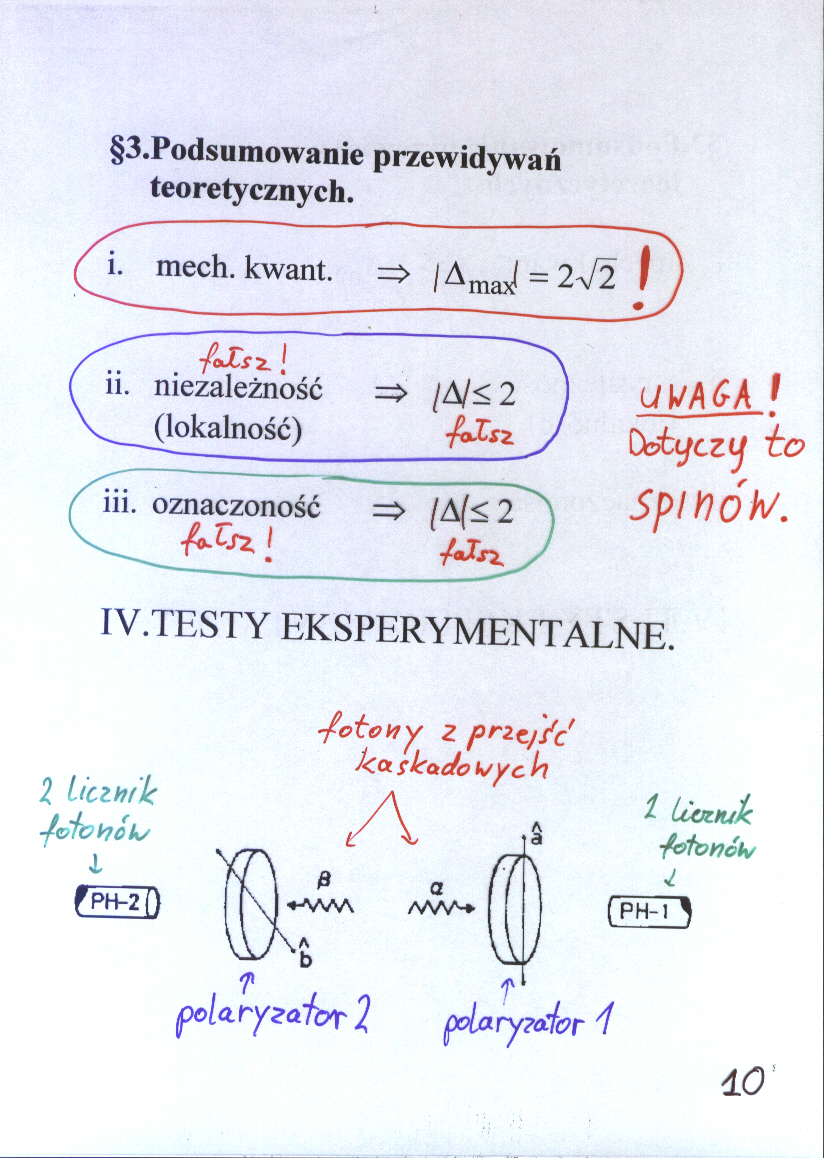 §3.Podsumowanie przewidywań
teoretycznych.
i. mech. kwant. ⇒ |Δmax| = 2√2 !
fałsz!
ii. niezależność ⇒ |Δ| ≤ 2
(lokalność) fałsz
iii. oznaczoność ⇒ |Δ| ≤ 2
fałsz! fałsz
UWAGA!
Dotyczy to
SPINÓW.
IV.TESTY EKSPERYMENTALNE.
fotony z przejść
kaskadowych
2 licznik
fotonów
1 licznik
fotonów
PH-2
β
b̂
α
â
PH-1
polaryzator 2
polaryzator 1
10